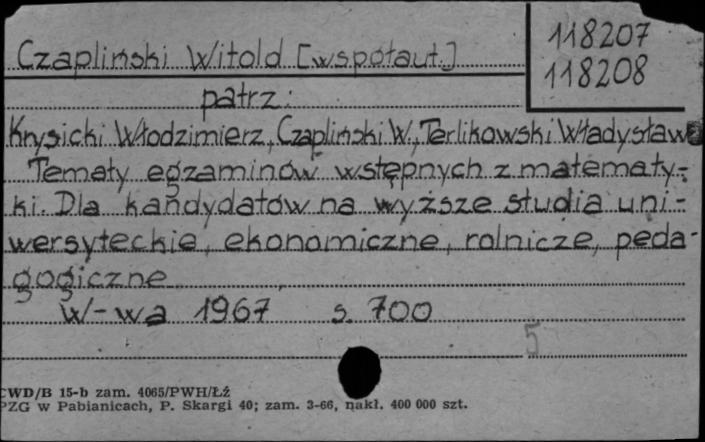 118207
Czapliński Witold [współaut.]
118208
patrz:
Krysicki Włodzimierz, Czapliński W., Terlikowski Władysław
Tematy egzaminów wstępnych z matematy-
ki. Dla kandydatów na wyższe studia uni-
wersyteckie, ekonomiczne, rolnicze, peda-
gogiczne
W-wa 1967 s. 700
5
CWD/B 15-b zam. 4065/PWH/Łź
PZG w Pabianicach, P. Skargi 40; zam. 3-66, nakł. 400 000 szt.